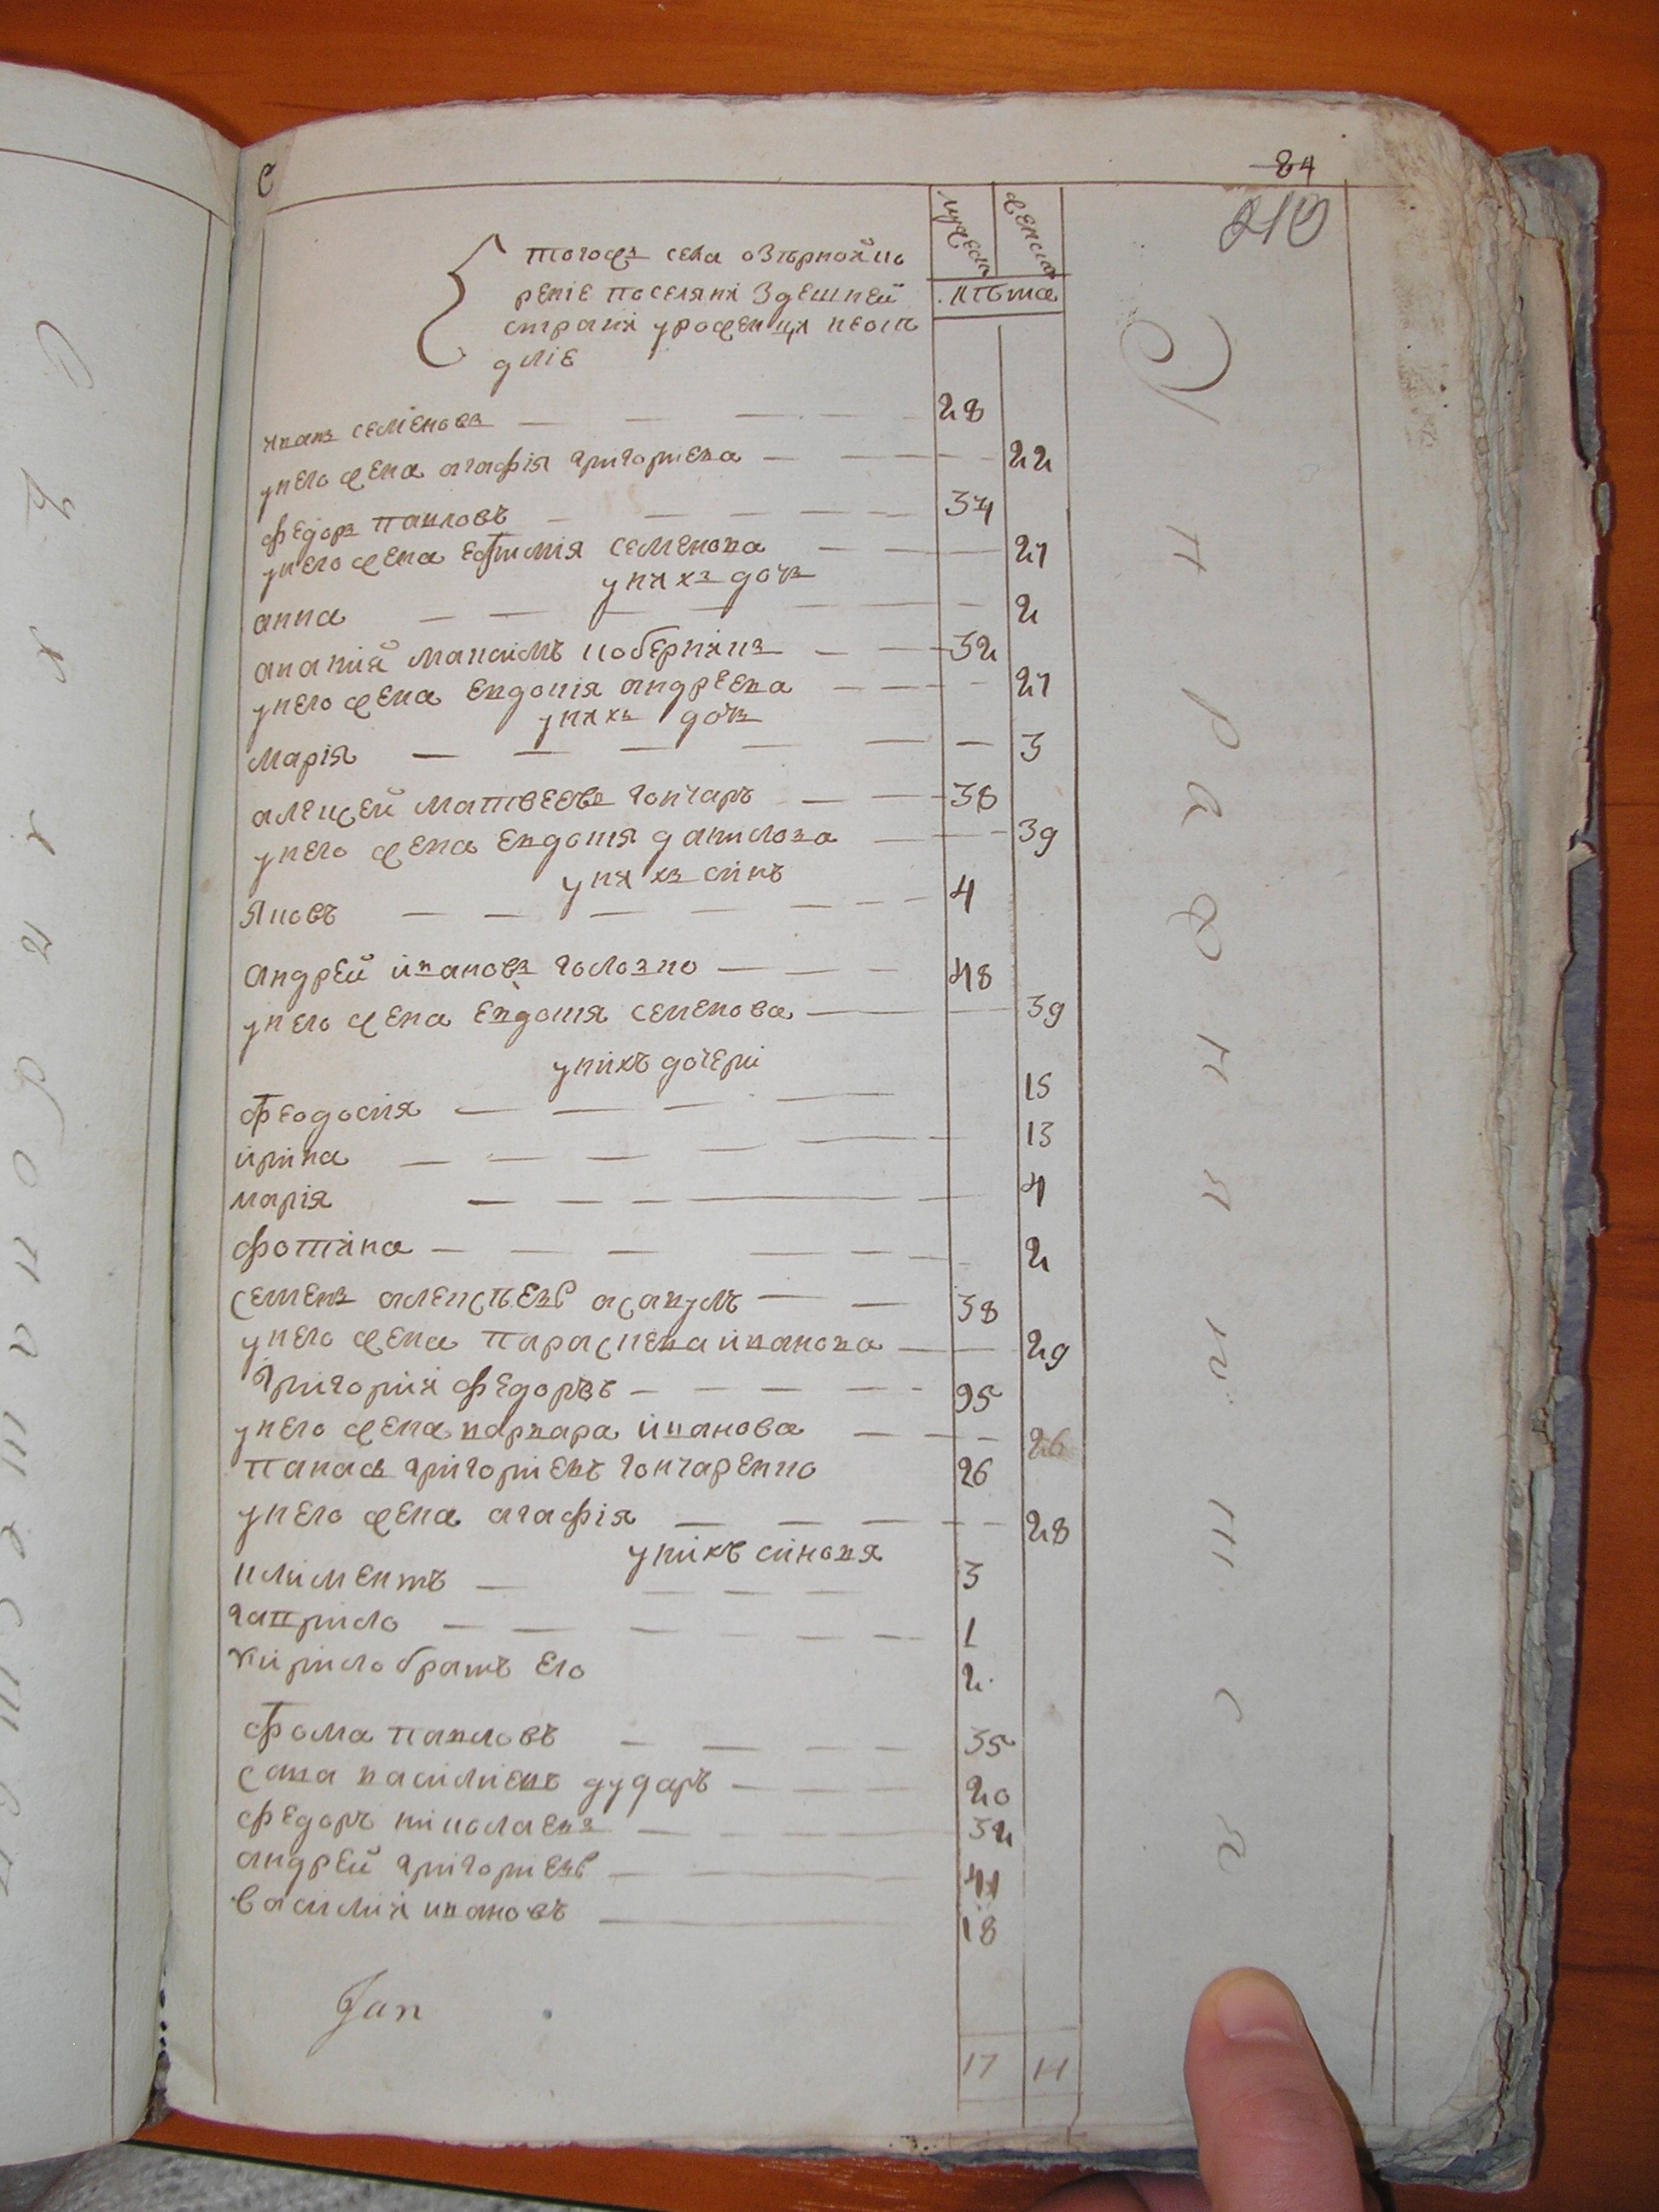 С
84
210
мужеск женска
лѣта
тогожъ села озѣрной
рение поселяни здешней
страни уроженци неоп
дліе
иванъ семіеновъ 28
унего жена агафія григориева 22
федоръ павловъ 34
унего жена ефтимія семенова 21
унихъ дочъ
анна 2
ананій максимъ коберникъ 32
унего жена евдокія андреева 21
унихъ дочъ
марія 3
алексей матвеевъ гончаръ 38
унего жена евдокія данилова 39
унихъ синъ
яковъ 4
андрей ивановъ головко 48
унего жена евдокія семенова 39
унихъ дочери
феодосия 15
ирина 13
марія 4
фотина 2
семенъ алексѣевъ асаулъ 38
унего жена параскева иванова 29
григорий федоровъ 95
унего жена варвара иванова 26
панасъ григориевъ гончаренко 26
унего жена агафія 28
унихъ синовя
климентъ 3
гаврило 1
кирило братъ его 2
фома павловъ 35
сава василиевъ дударъ 20
федоръ николаевъ 32
андрей григориевъ 41
василий ивановъ 18
17 14